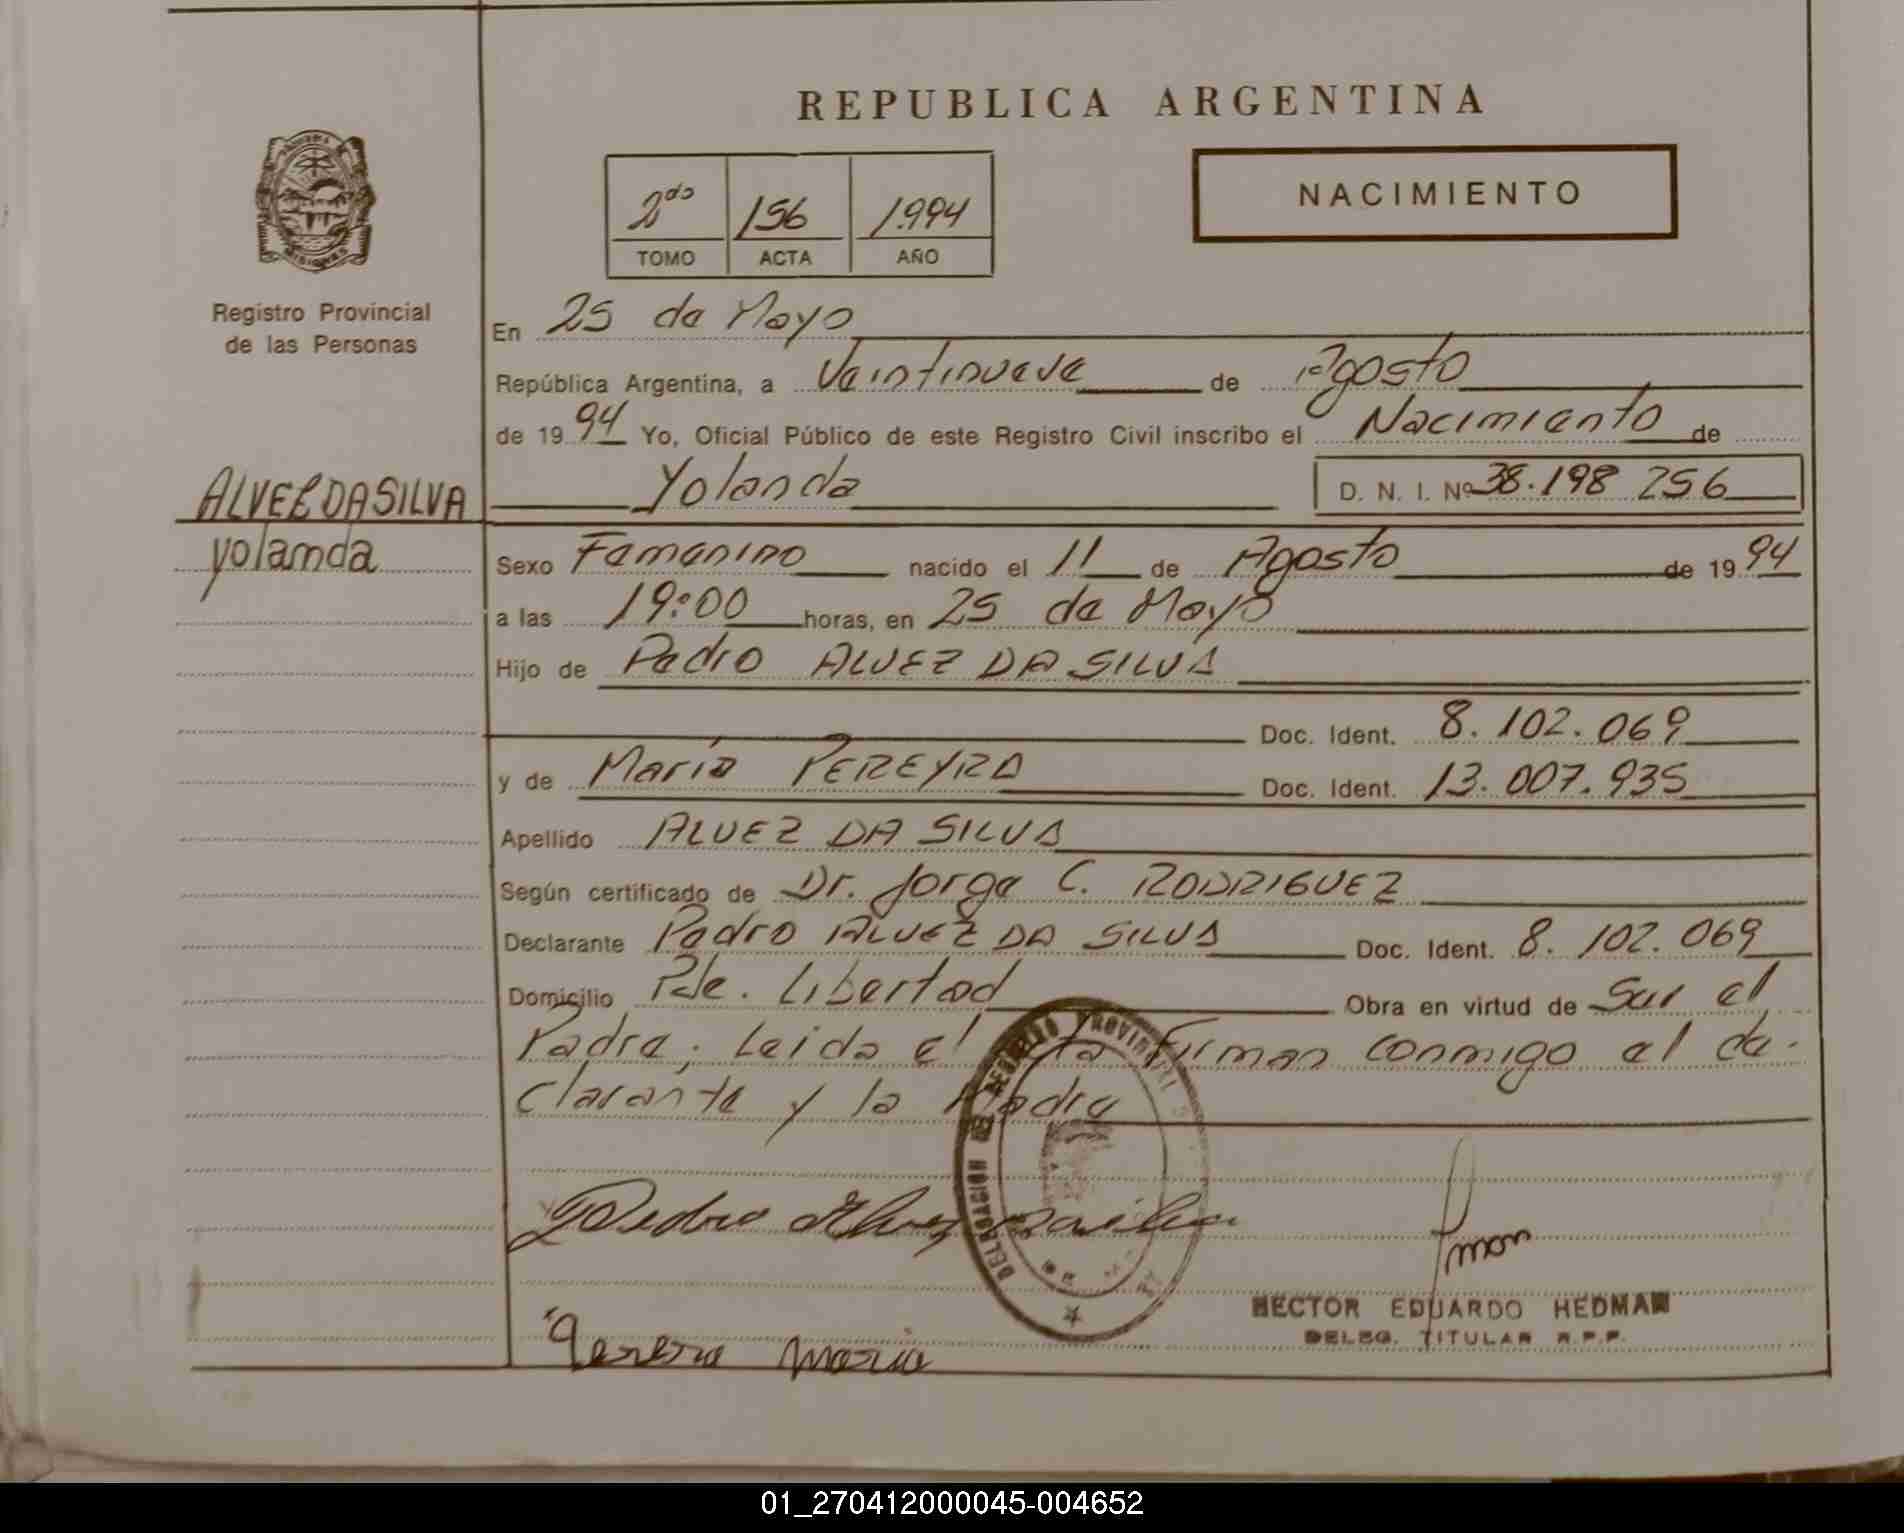 REPUBLICA ARGENTINA
NACIMIENTO
2do 156 1.994
TOMO ACTA AÑO
Registro Provincial
de las Personas
En 25 de Mayo
República Argentina, a Veintinueve de Agosto
de 1994 Yo, Oficial Público de este Registro Civil inscribo el Nacimiento de
Yolanda D. N. I. Nº 38.198 256
ALVEZ DA SILVA
yolanda
Sexo Femenino nacido el 11 de Agosto de 1994
a las 19:00 horas, en 25 de Mayo
Hijo de Pedro ALVEZ DA SILVA
Doc. Ident. 8.102.069
y de María PEREYRA Doc. Ident. 13.007.935
Apellido ALVEZ DA SILVA
Según certificado de Dr. Jorge C. RODRIGUEZ
Declarante Pedro ALVEZ DA SILVA Doc. Ident. 8.102.069
Domicilio Pje. Libertad Obra en virtud de Ser el
Padre. Leida el Firman conmigo el de-
clarante y la Madre
DELEGACION DEL REGISTRO PROVINCIAL
Pedro Alvez
HECTOR EDUARDO HEDMAN
DELEG. TITULAR R.P.P.
Pereira Maria
01_270412000045-004652